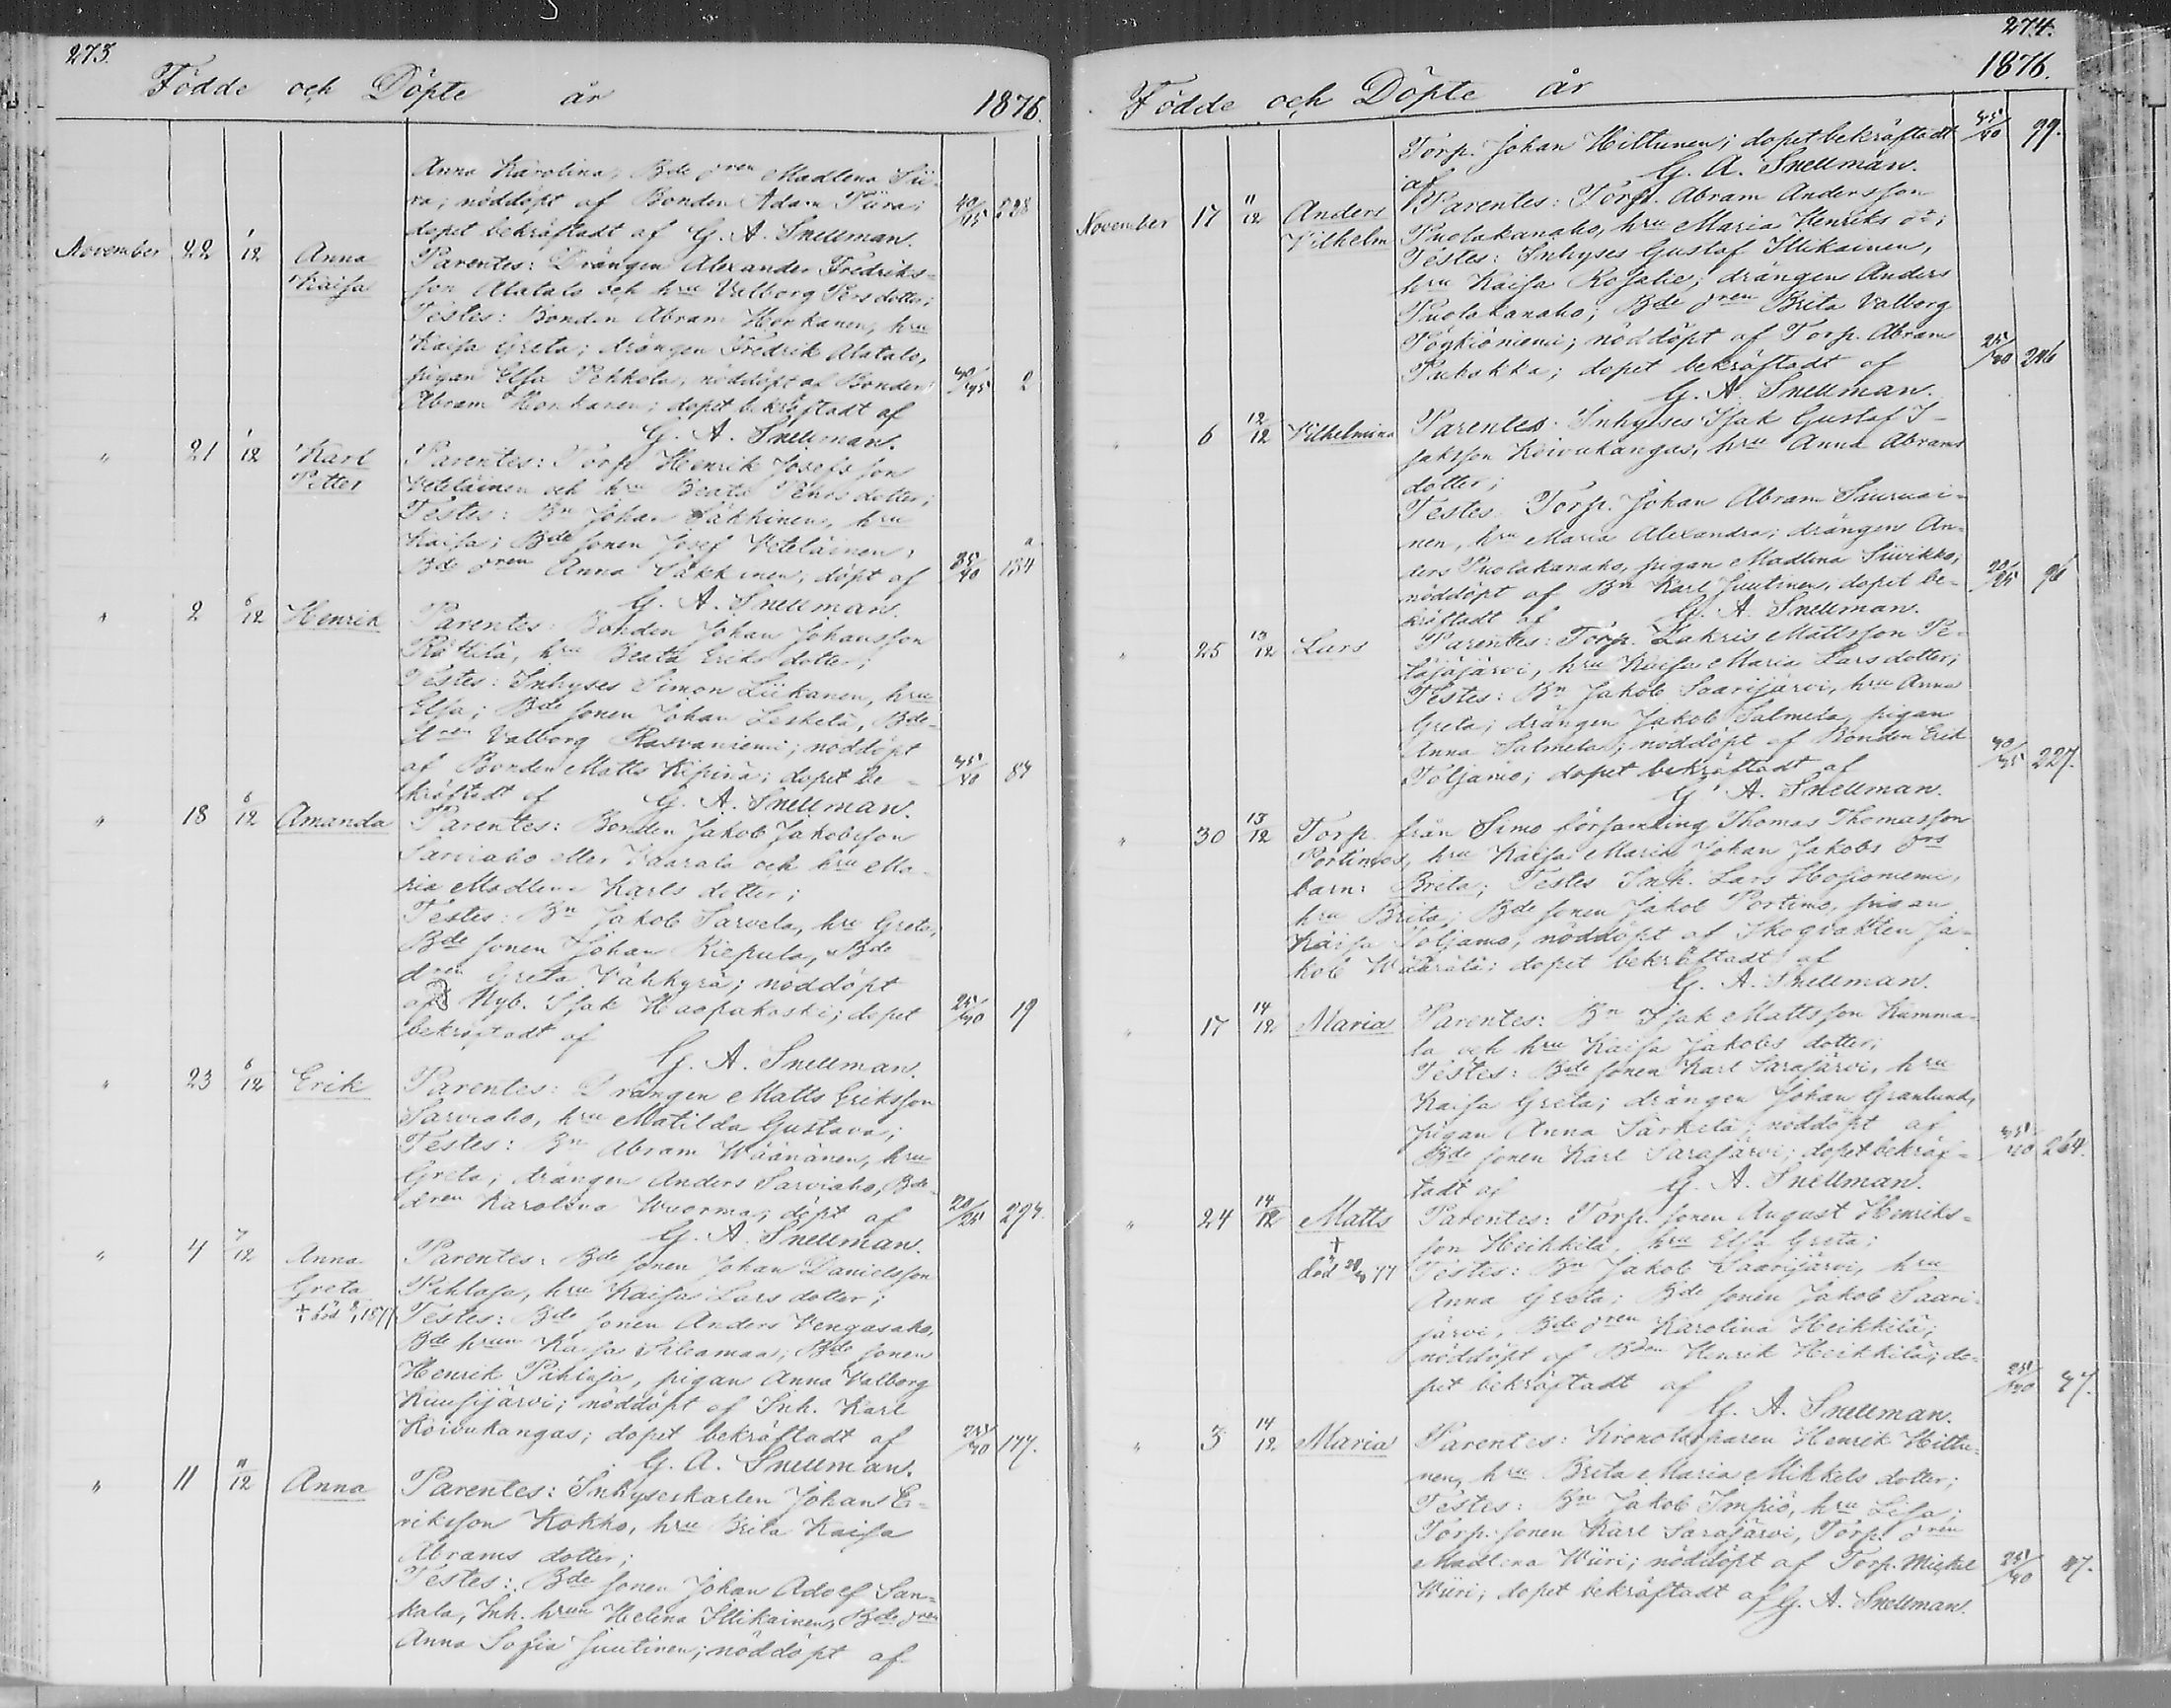 273.
Födde och Döpte år 1876.
Anna Karolina, Bde dren Madlena Sii-
ra; nöddöpt af Bonden Adam Siira; 40/45 228
dopet bekräftadt af G. A. Snellman.
November 22 1/12 Anna Kaisa Parentes: Drängen Alexander Fredriks-
son Alatalo och hru Valborg Persdotter;
Testes: Bonden Abram Honkanen, hru
Kaisa Greta; drängen Fredrik Alatalo,
pigan Elsa Pekkola, nöddöpt af Bonden 40/45 2
Abram Honkanen; dopet bekräftadt af
G. A. Snellman.
" 21 1/12 Karl Petter Parentes: Torp. Henrik Josefsson
Veteläinen och hru Beata Pehrsdotter;
Testes: Bn Johan Säkkinen, hru
Kaisa; Bde sonen Josef Veteläinen,
Bde dren Anna Säkkinen, döpt af 35/40 134
G. A. Snellman.
" 2 6/12 Henrik Parentes: Bonden Johan Johansson
Röttilä, hru Beata Eriks dotter;
Testes: Inhyses Simon Liikanen, hru
Elsa; Bde sonen Johan Leskelä, Bde
dren Valborg Rasvaniemi; nöddöpt
af Bonden Matts Kipinä; dopet be- 35/40 84
kräftadt af G. A. Snellman.
" 18 6/12 Amanda Parentes: Bonden Jakob Jakobsson
Sarviaho eller Vaarala och hru Ma-
ria Madlena Karls dotter;
Testes: Bn Jakob Sarvela, hru Greta,
Bde sonen Johan Kiepula, Bde
dren Greta Vähkyrä; nöddöpt
af Nyb. Isak Haapakoski; dopet 25/40 19
bekräftadt af
G. A. Snellman.
" 23 6/12 Erik Parentes: Drängen Matts Eriksson
Sarviaho, hru Matilda Gustava;
Testes: Bn Abram Wäänänen, hru
Greta; drängen Anders Sarviaho, Bde
dren Karolina Wuorma; döpt af 20/25 294.
G. A. Snellman.
" 4 7/12 Anna Greta Parentes: Bde sonen Johan Danielsson
Pihlaja, hru Kaisa Lars dotter;
† död 1877 Testes: Bde sonen Anders Vengasaho,
Bde hrun Kaisa Sileamaa; Bde sonen
Henrik Pihlaja, pigan Anna Valborg
Kuusijärvi; nöddöpt af Inh. Karl
Koivukangas; dopet bekräftadt af 177.
G. A. Snellman.
" 11 11/12 Anna Parentes: Inhyseskarlen Johan E-
riksson Kokko, hru Brita Kaisa
Abrams dotter;
Testes: Bde sonen Johan Adolf San-
kala, Inh. hrun Helena Illikainen, Bde dren
Anna Sofia Juutinen; nöddöpt af
274.
Födde och Döpte år 1876.
Torp. Johan Hiltunen; dopet bekräftadt 35/40 99.
af G. A. Snellman.
November 17 11/12 Anders Vilhelm Parentes: Torp. Abram Andersson
Puolakanaho, hru Maria Henriks dr;
Testes: Inhyses Gustaf Illikainen,
hru Kaisa Rosalie; drängen Anders
Puolakanaho; Bde dren Brita Valborg
Pöykiöniemi; nöddöpt af Torp. Abram 25/30 246
Puhakka; dopet bekräftadt af
G. A. Snellman.
" 6 12/12 Vilhelmina Parentes: Inhyses Isak Gustaf I-
saksson Koivukangas, hru Anna Abrams
dotter;
Testes: Torp. Johan Abram Suurnui-
nen, hru Maria Alexandra; drängen An-
ders Puolakanaho, pigan Madlena Siivikko;
nöddöpt af Bn Karl Juutinen, dopet be- 20/25 96
kräftadt af G. A. Snellman.
" 25 13/12 Lars Parentes: Torp. Zakris Mattsson Pe-
täjäjärvi, hru Kaisa Maria Lars dotter;
Testes: Bn Jakob Saarijärvi, hru Anna
Greta; drängen Jakob Salmela, pigan
Anna Salmela; nöddöpt af Bonden Erik 40/45 227.
Toljamo; dopet bekräftadt af
G. A. Snellman.
" 30 13/12 Torp. från Simo församling Thomas Thomasson
Portimos, hru Kaisa Maria Johan Jakobs drs
barn: Brita; Testes Inh. Lars Hosioniemi,
hru Brita; Bde sonen Jakob Portimo, pigan
Kaisa Toljamo, nöddöpt af Skogvakten Ja-
kob Waarala; dopet bekräftadt af
G. A. Snellman.
" 17 14/12 Maria Parentes: Bn Isak Mattsson Kumma-
la och hru Kaisa Jakobs dotter;
Testes: Bde sonen Karl Sarajärvi, hru
Kaisa Greta; drängen Johan Granlund,
pigan Anna Särkelä; nöddöpt af
Bde sonen Karl Sarajärvi; dopet bekräf- 35/40 264.
tadt af G. A. Snellman.
" 24 14/12 Matts Parentes: Torp. sonen August Henriks-
† son Heikkilä, hru Elsa Greta;
död 77 Testes: Bn Jakob Saarijärvi, hru
Anna Greta; Bde sonen Jakob Saari-
järvi, Bde dren Karolina Heikkilä;
nöddöpt af Bden Henrik Heikkilä; do-
pet bekräftadt af 25/30 47.
G. A. Snellman.
" 3 14/12 Maria Parentes: Kronotorparen Henrik Hiltu-
nen, hru Brita Maria Mikkels dotter;
Testes: Bn Jakob Impiö, hru Lisa;
Torp. sonen Karl Sarajärvi, Torp. dren
Madlena Wiiri; nöddöpt af Torp. Mickel 25/30 47.
Wiiri; dopet bekräftadt af G. A. Snellman.